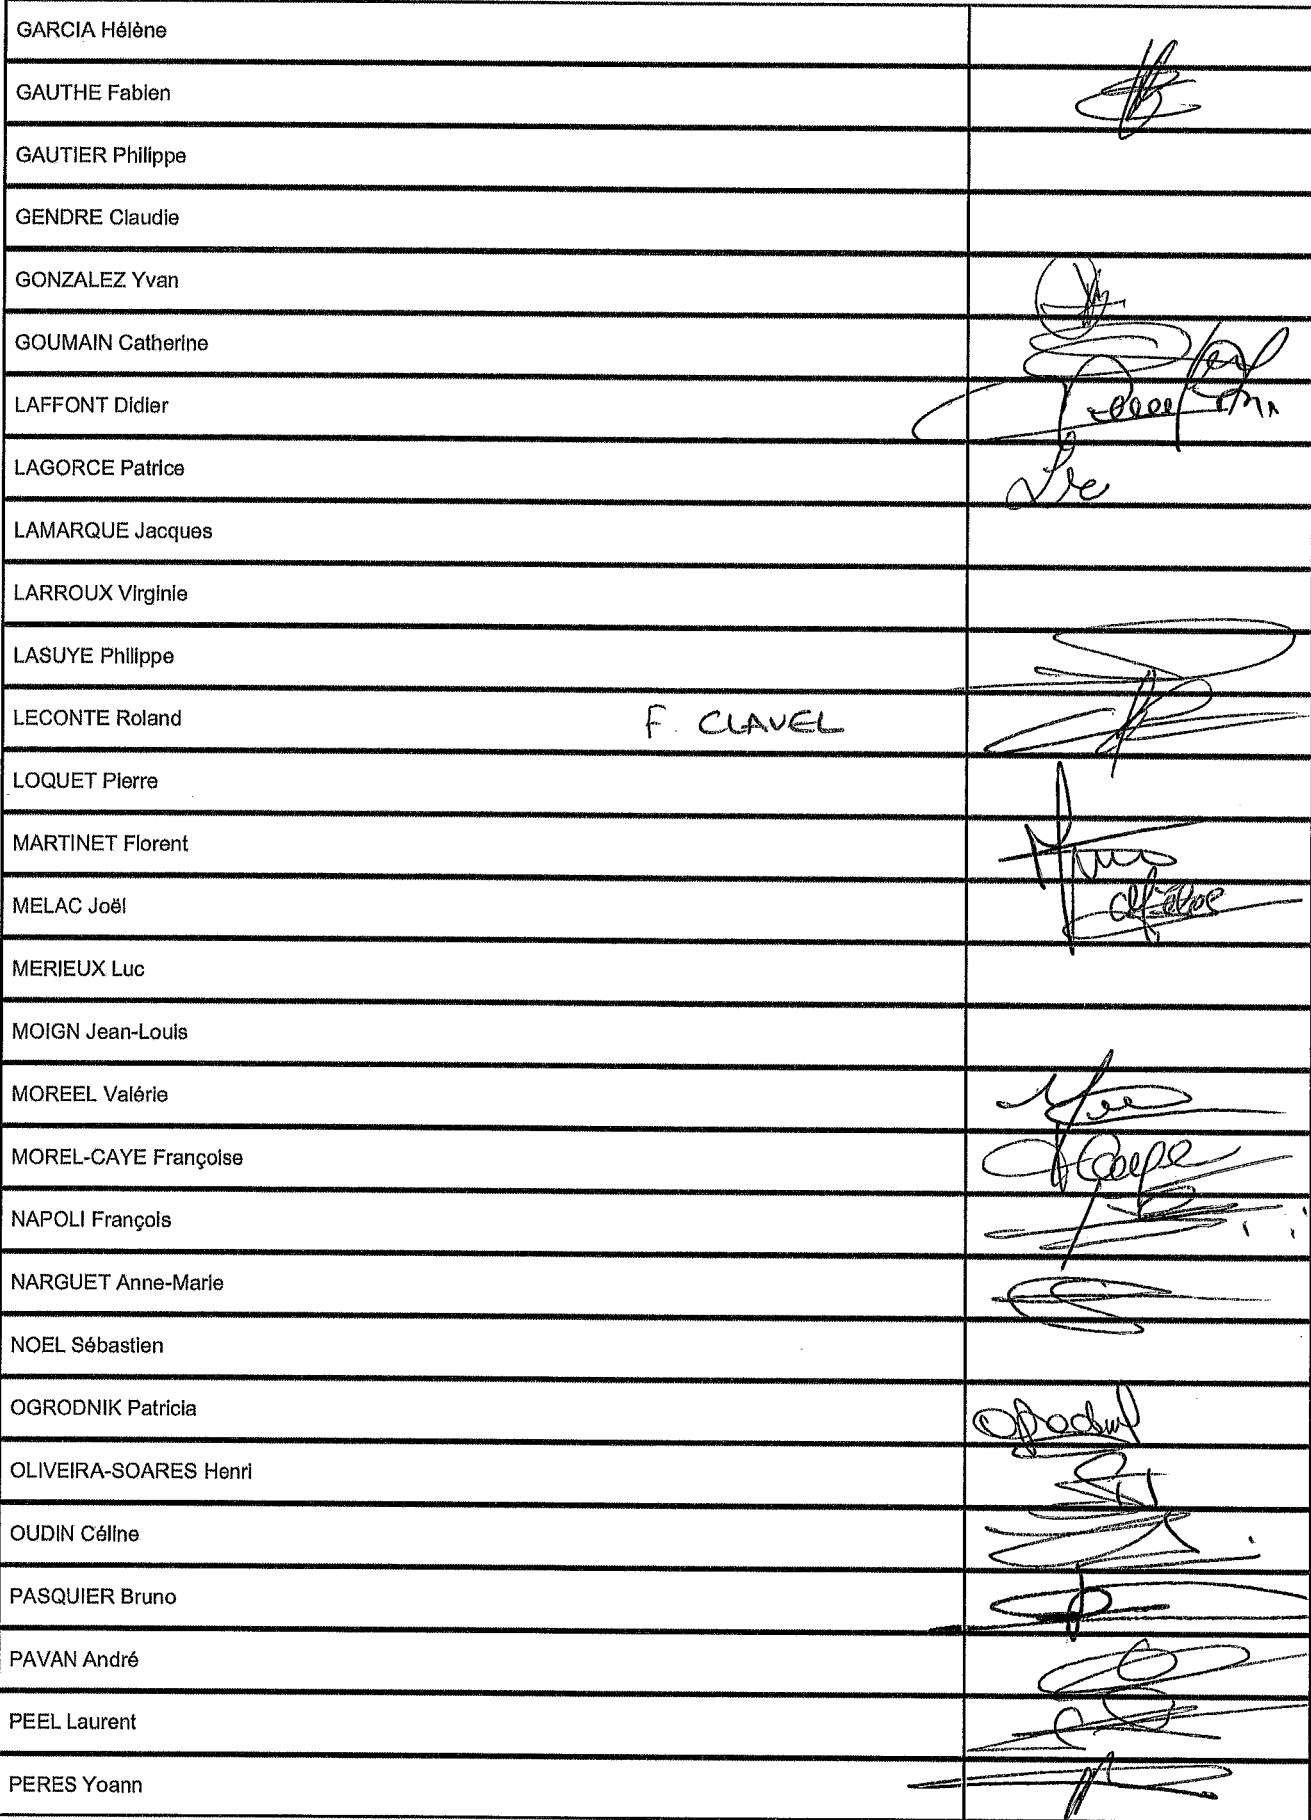 GARCIA Hélène
GAUTHE Fabien
GAUTIER Philippe
GENDRE Claudie
GONZALEZ Yvan
GOUMAIN Catherine
LAFFONT Didier
LAGORCE Patrice
LAMARQUE Jacques
LARROUX Virginie
LASUYE Philippe
LECONTE Roland F. CLAVEL
LOQUET Pierre
MARTINET Florent
MELAC Joël
MERIEUX Luc
MOIGN Jean-Louis
MOREEL Valérie
MOREL-CAYE Françoise
NAPOLI François
NARGUET Anne-Marie
NOEL Sébastien
OGRODNIK Patricia
OLIVEIRA-SOARES Henri
OUDIN Céline
PASQUIER Bruno
PAVAN André
PEEL Laurent
PERES Yoann